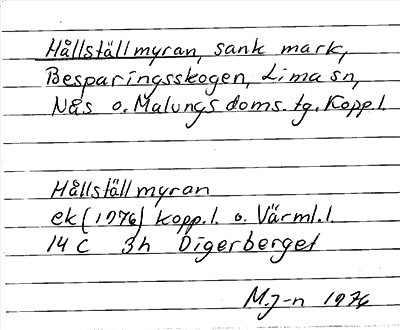 Hållställmyran, sank mark,
Besparingsskogen, Lima sn,
Nås o. Malungs doms. tg. Kopp.l.
Hållställmyran
ek (1976) Kopp.l. o. Värml.l.
14 C 3h Digerberget
M.J-n 1976